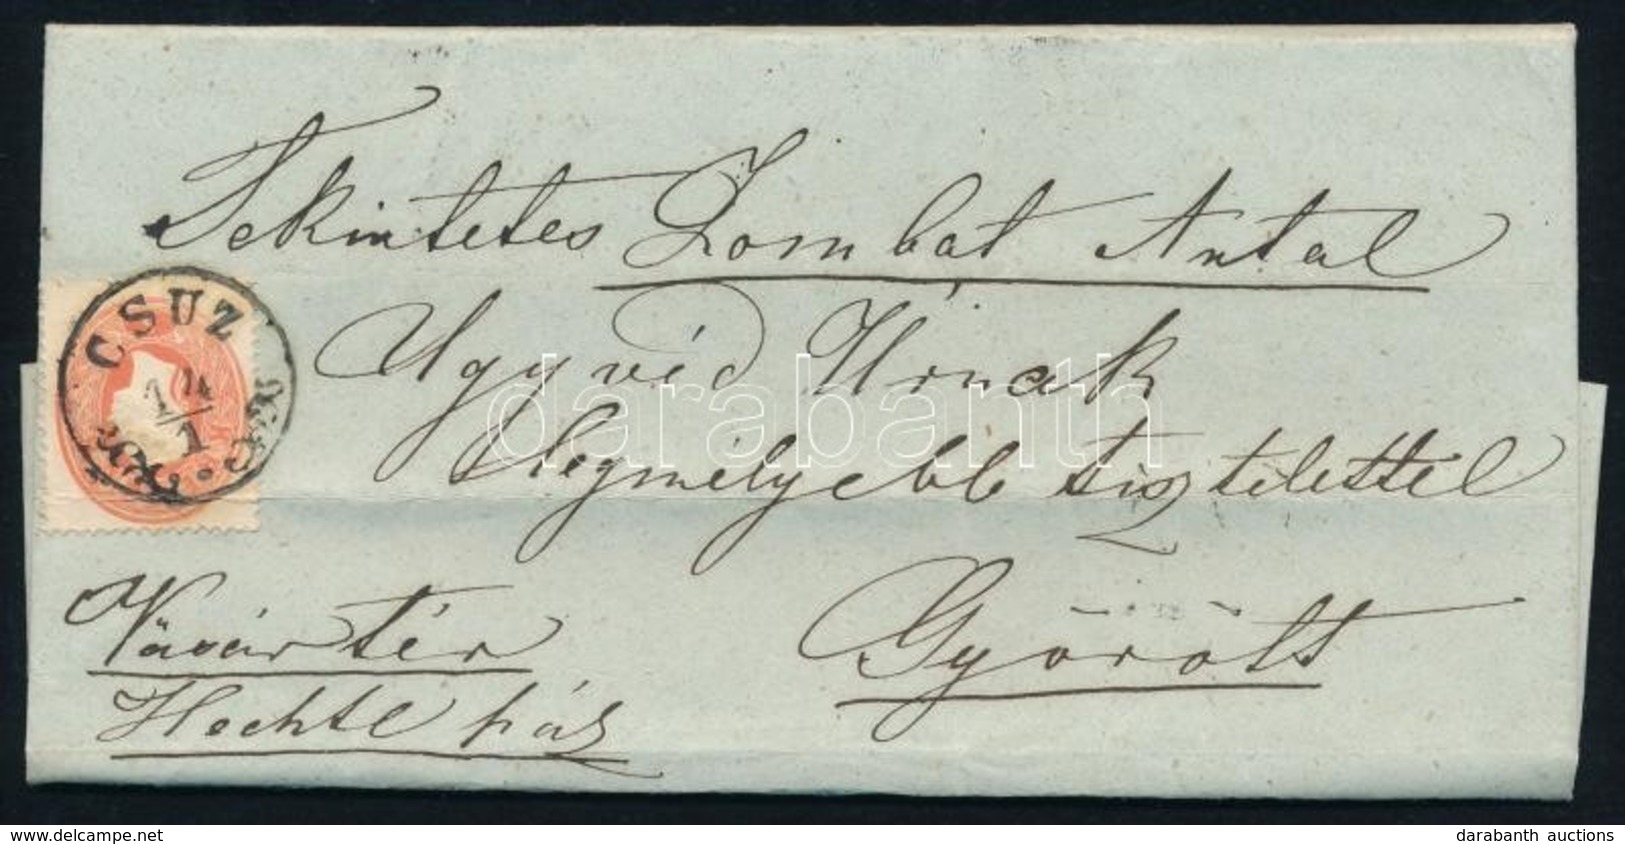 Tekintetes Zombat Antal
Ügyvéd Úrnak
Legmélyebb tisztelettel
Győrött
Vásártér
Hechtl ház
CSUZ
14/1
darabanth
delcampe.net
darabanth auctions